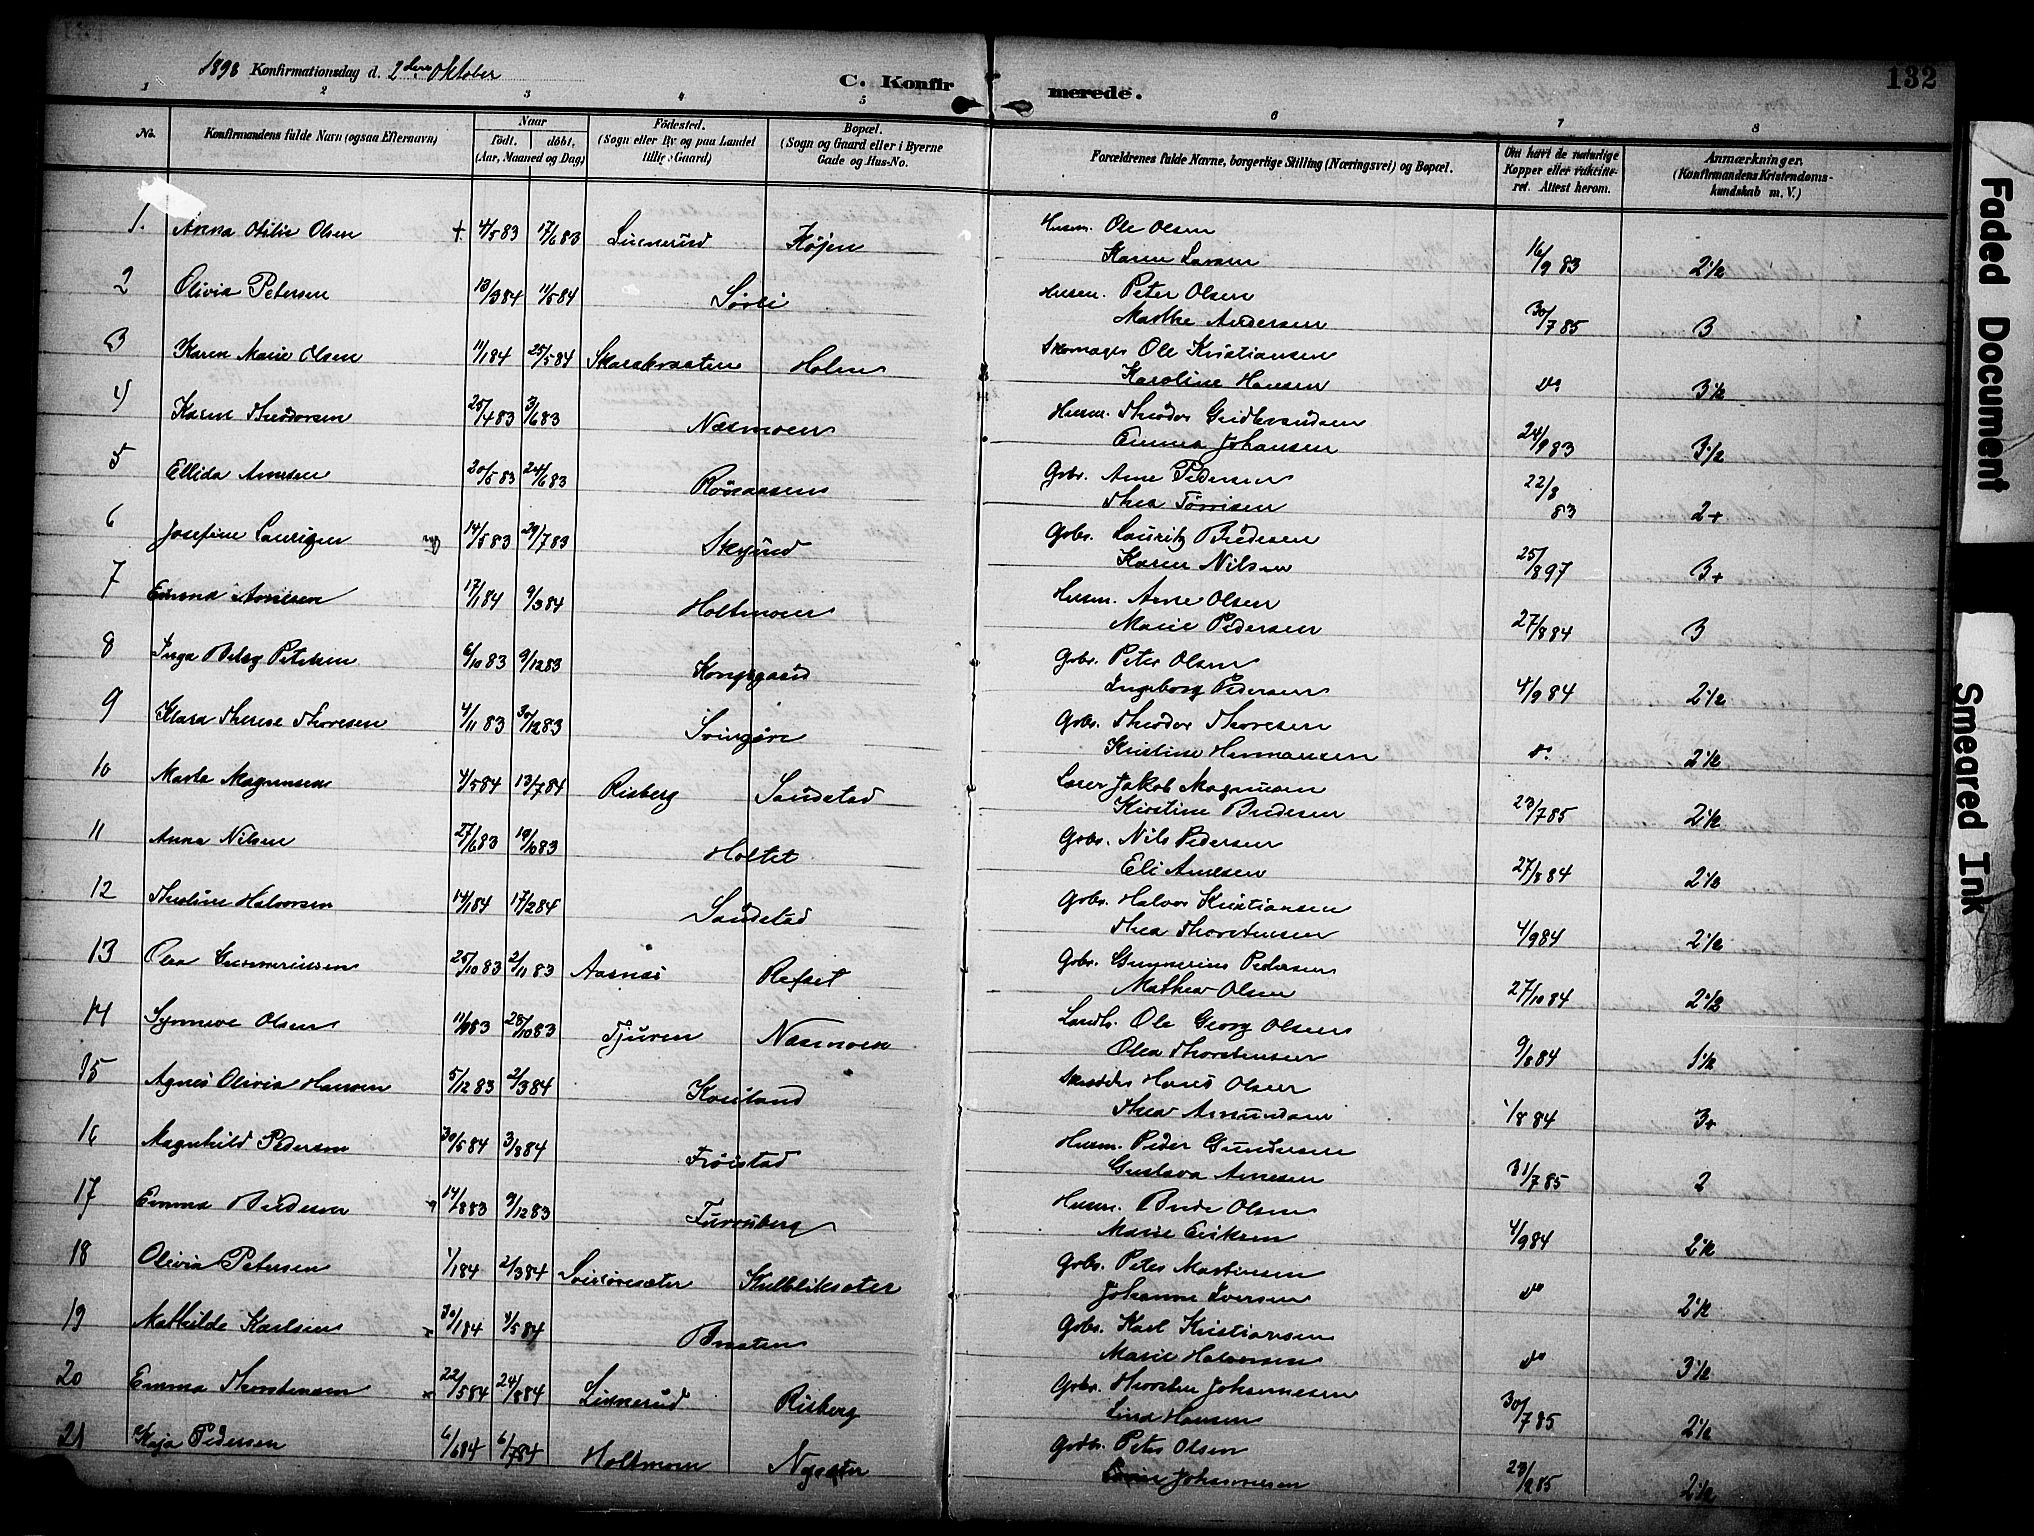 1898 Konfirmationsdag d. 2den Oktober
C. Konfirmerede.
132
1 2 3 4 5 6 7 8
No.
Konfirmandens fulde Navn (ogsaa Efternavn)
Naar
födt. döbt.
(Aar, Maaned og Dag)
Födested.
(Sogn eller By og paa Landet tillige Gaard)
Bopæl.
(Sogn og Gaard eller i Byerne Gade og Hus-No.
Forældrenes fulde Navne, borgerlige Stilling (Næringsvei) og Bopæl.
Om havt de naturlige Kopper eller vakcineret. Attest herom.
Anmærkninger.
(Konfirmandens Kristendomskundskab m. V.)
1. Anna Otilie Olsen + 4/5 83 17/6 83 Linnerud Køjen Husm. Ole Olsen
Karen Larsen 16/9 83 2 1/2
2 Olivia Petersen 13/3 84 11/5 84 Sørli Husm. Peter Olsen
Marthe Andersen 30/7 85 3
3 Karen Marie Olsen 11/1 84 25/5 84 Holen Skomager Ole Kristiansen
Karoline Hansen do 3 1/2
4 Karen Theodorsen 25/4 83 3/6 83 Næsmoen Husm. Theodor Gudbrandsen
Emma Johansen 24/9 83 3 1/2
5 Ellida Arnesen 20/5 83 24/6 83 Gbr. Arne Pedersen
Thea Tørrisen 22/8 83 2+
6 Josefine Lauritzen 14/5 83 29/7 83 Gbr. Lauritz Bredesen
Karen Nilsen 25/8 97 3+
7 Emma Arnesen 17/1 84 9/3 84 Holtmoen Husm. Arne Olsen
Marie Pedersen 27/8 84 3
8 Inga Petersen 6/10 83 9/12 83 Kongsgaard Gbr. Peter Olsen
Ingeborg Pedersen 4/9 84 2 1/2
9 Klara Therese Thoresen 4/11 83 30/12 83 Gbr. Theodor Thoresen
Kristine Hermansen do 2 1/2
10 Marta Magnussen 4/5 84 13/7 84 Risberg Sandstad Jakob Magnussen
Kirstine Bredesen 23/7 85 2 1/2
11 Anna Nilsen 27/6 83 Holtet Gbr. Nils Pedersen
Eli Arnesen 27/8 84 2 1/2
12 Theoline Halvorsen 14/1 84 17/2 84 Sandstad Gbr. Halvor Kristiansen
Thea Thorstensen 4/9 84 2 1/2
13 Olea Gunneriussen 25/10 83 2/11 83 Aasnæs Refset Gbr. Gunnerius Pedersen
Mathea Olsen 27/10 84 2 1/2
14 Synneve Olsen 11/9 83 28/10 83 Tjuren Næsmoen Landh. Ole Georg Olsen
Olea Thorstensen 9/8 84 1 1/2
15 Agnes Olivia Hansen 5/12 83 2/3 84 Skrædder Hans Olsen
Thea Amundsen 1/8 84 3+
16 Magnhild Pedersen 30/5 84 3/8 84 Frøistad Husm. Peder Gundersen
Gustava Arnesen 31/7 85 2
17 Emma Bredesen 14/8 83 9/12 83 Furruberg Husm. Brede Olsen
Marie Eriksen 4/9 84 2 1/2
18 Olivia Petersen 1/1 84 2/3 84 Kulbliksæter Gbr. Peter Martinsen
Johanne Iversen do 2 1/2
19 Mathilde Karlsen 30/1 84 4/5 84 Braaten Gbr. Karl Kristiansen
Marie Halvorsen do 3 1/2
20 Emma Thorstensen 22/5 84 24/8 84 Linnerud Risberg Gbr. Thorsten Johannesen
Lina Hansen 30/7 85 2 1/2
21 Kaja Pedersen 6/6 84 6/7 84 Holtmoen Nysæter Gbr. Peter Olsen
Johannesen 23/9 85 2 1/2
Faded Document
Smeared Ink